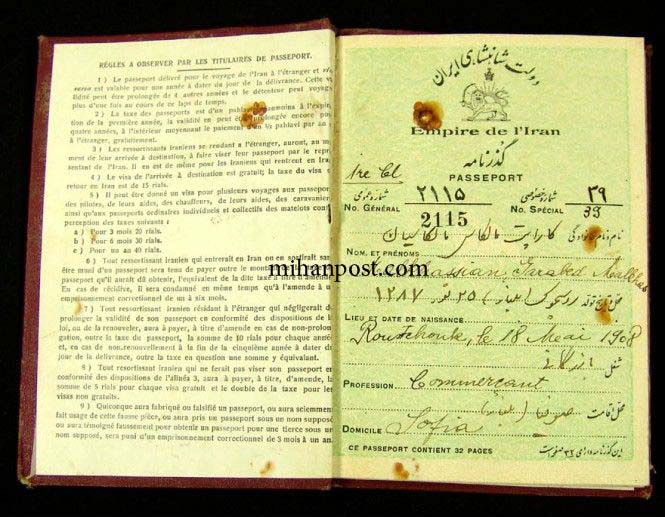 RÈGLES A OBSERVER PAR LES TITULAIRES DE PASSEPORT.
1 ) Le passeport délivré pour le voyage de l'Iran à l'étranger et
est valable pour une année à dater du jour de la délivrance. Cette
lidité peut être prolongée de 4 autres années et le détenteur peut voyag
plus d'une fois au cours de ce laps de temps.
2 ) La taxe des passeports est d'un pahlavi
tion de la première année, la validité en peut être prolongée encore
quatre années, à l'intérieur moyennant le paiement d'un ½ pahlavi par an
à l'étranger, gratuitement.
3 ) Les ressortissants iraniens se rendant à l'étranger, auront, au
ment de leur arrivée à destination, à faire viser leur passeport par le repr
sentant de l'Iran. Il en est de même pour les Iraniens qui rentrent en Ira
4 ) Le visa de l'arrivée à destination est gratuit; la taxe du visa
retour en Iran est de 15 rials.
5 ) Il peut être donné un visa pour plusieurs voyages aux passepor
des pilotes, de leurs aides, des chauffeurs, de leurs aides, des caravanier
ainsi qu'aux passeports ordinaires individuels et collectifs des matelots
perception des taxes suivantes :
a ) Pour 3 mois 20 rials.
b ) Pour 6 mois 30 rials.
c ) Pour un an 40 rials.
6 ) Tout ressortissant iranien qui entrerait en Iran ou en sortirait san
être muni d'un passeport sera tenu de payer outre le
passeport qu'il aurait dû obtenir, l'équivalent de la dite taxe à titre d'amende
En cas de récidive, il sera condamné en même temps qu'à l'amende à
emprisonnement correctionnel de un à six mois.
7 ) Tout ressortissant iranien résidant à l'étranger qui négligerait
prolonger la validité de son passeport en conformité des dispositions de
loi, ou de la renouveler, aura à payer, à titre d'amende en cas de non-prolon
gation, outre la taxe du passeport, la somme de 10 rials pour chaque année
et, en cas de non.renouvellement à la fin de la cinquième année à dater
jour de la delivrance, outre la taxe en question une somme y équivalant.
8 ) Tout ressortissant iranien qui ne ferait pas viser son passeport
conformité des dispositions de l'alinéa 3, aura à payer, à titre d'amende, la
somme de 5 rials pour chaque visa gratuit et le double de la taxe pour les
visas non gratuits.
9 ) Quiconque aura fabriqué ou falsifié un passeport, ou aura sciemment
fait usage de cette fausse pièce, ou aura pris un passeport sous un nom supposé
ou aura témoigné faussement pour obtenir un passeport pour une tierce sous un
nom supposé, sera puni d'un emprisonnement correctionnel de 3 mois à un an.
دولت شاهنشاهی ایران
Empire de l'Iran
گذرنامه
PASSEPORT
1re Cl
شماره عمومی ٢١١۵ شماره خصوصی ٣٩
No. GÉNÉRAL 2115 No. SPÉCIAL 39
نام و نام خانوادگی
NOM ET PRÉNOMS
mihanpost.com
Garabed
محل و تاریخ تولد ٢۵ ١٢٨٧
LIEU ET DATE DE NAISSANCE.
Roustchouk, le 18 Mai 1908
شغل
PROFESSION Commerçant
محل اقامت
DOMICILE Sofia
CE PASSEPORT CONTIENT 32 PAGES این گذرنامه دارای ٣٢ صفحه است